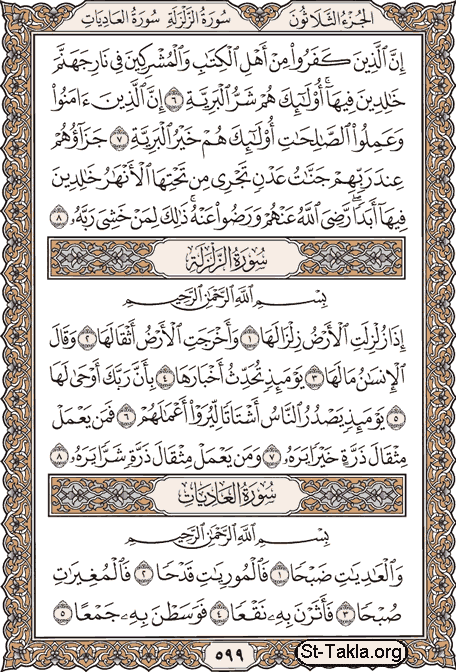 الجُزْءُ الثَّلَاثُونَ سُورَةُ الزَّلْزَلَةِ سُورَةُ العَادِيَاتِ
إِنَّ ٱلَّذِينَ كَفَرُوا۟ مِنْ أَهْلِ ٱلْكِتَٰبِ وَٱلْمُشْرِكِينَ فِى نَارِ جَهَنَّمَ
خَٰلِدِينَ فِيهَآ ۚ أُو۟لَٰٓئِكَ هُمْ شَرُّ ٱلْبَرِيَّةِ ٦ إِنَّ ٱلَّذِينَ ءَامَنُوا۟
وَعَمِلُوا۟ ٱلصَّٰلِحَٰتِ أُو۟لَٰٓئِكَ هُمْ خَيْرُ ٱلْبَرِيَّةِ ٧ جَزَآؤُهُمْ
عِندَ رَبِّهِمْ جَنَّٰتُ عَدْنٍ تَجْرِى مِن تَحْتِهَا ٱلْأَنْهَٰرُ خَٰلِدِينَ
فِيهَآ أَبَدًا ۖ رَّضِىَ ٱللَّهُ عَنْهُمْ وَرَضُوا۟ عَنْهُ ۚ ذَٰلِكَ لِمَنْ خَشِىَ رَبَّهُۥ ٨
سُورَةُ الزَّلْزَلَةِ
بِسْمِ ٱللَّهِ ٱلرَّحْمَٰنِ ٱلرَّحِيمِ
إِذَا زُلْزِلَتِ ٱلْأَرْضُ زِلْزَالَهَا ١ وَأَخْرَجَتِ ٱلْأَرْضُ أَثْقَالَهَا ٢ وَقَالَ
ٱلْإِنسَٰنُ مَا لَهَا ٣ يَوْمَئِذٍ تُحَدِّثُ أَخْبَارَهَا ٤ بِأَنَّ رَبَّكَ أَوْحَىٰ لَهَا
٥ يَوْمَئِذٍ يَصْدُرُ ٱلنَّاسُ أَشْتَاتًا لِّيُرَوْا۟ أَعْمَٰلَهُمْ ٦ فَمَن يَعْمَلْ
مِثْقَالَ ذَرَّةٍ خَيْرًا يَرَهُۥ ٧ وَمَن يَعْمَلْ مِثْقَالَ ذَرَّةٍ شَرًّا يَرَهُۥ ٨
سُورَةُ العَادِيَاتِ
بِسْمِ ٱللَّهِ ٱلرَّحْمَٰنِ ٱلرَّحِيمِ
وَٱلْعَٰدِيَٰتِ ضَبْحًا ١ فَٱلْمُورِيَٰتِ قَدْحًا ٢ فَٱلْمُغِيرَٰتِ
صُبْحًا ٣ فَأَثَرْنَ بِهِۦ نَقْعًا ٤ فَوَسَطْنَ بِهِۦ جَمْعًا ٥
٥٩٩
St-Takla.org